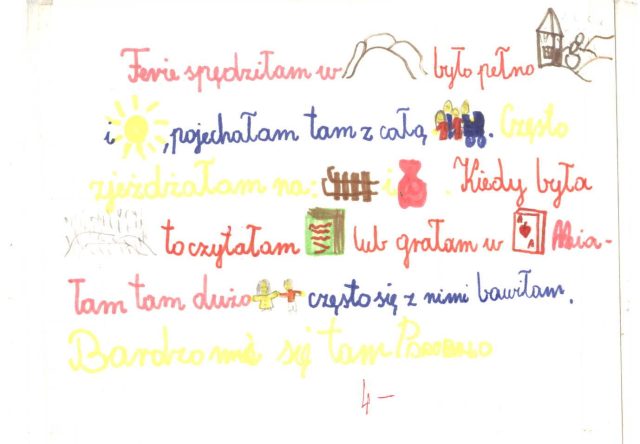 Ferie spędziłam w było pełno
i , pojechałam tam z całą . Często
zjeżdżałam na: i . Kiedy była
to czytałam lub grałam w A A Mia-
łam tam dużo często się z nimi bawiłam.
Bardzo mi się tam
4-